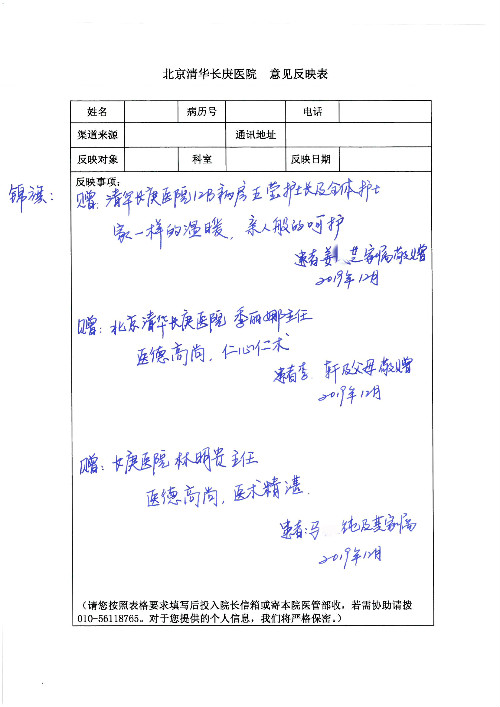 北京清华长庚医院 意见反映表
姓名 病历号 电话
渠道来源 通讯地址
反映对象 科室 反映日期
反映事项:
锦旗:
赠:清华长庚医院12B病房王莹护士长及全体护士
家一样的温暖,亲人般的呵护
患者姜 芝家属敬赠
2019年12月
赠:北京清华长庚医院 季丽娜主任
医德高尚,仁心仁术
患者李 轩及父母敬赠
2019年12月
赠:长庚医院 林明贵主任
医德高尚,医术精湛.
患者:马 纯及其家属
2019年12月
(请您按照表格要求填写后投入院长信箱或寄本院医管部收,若需协助请拨
010-56118765。对于您提供的个人信息,我们将严格保密。)